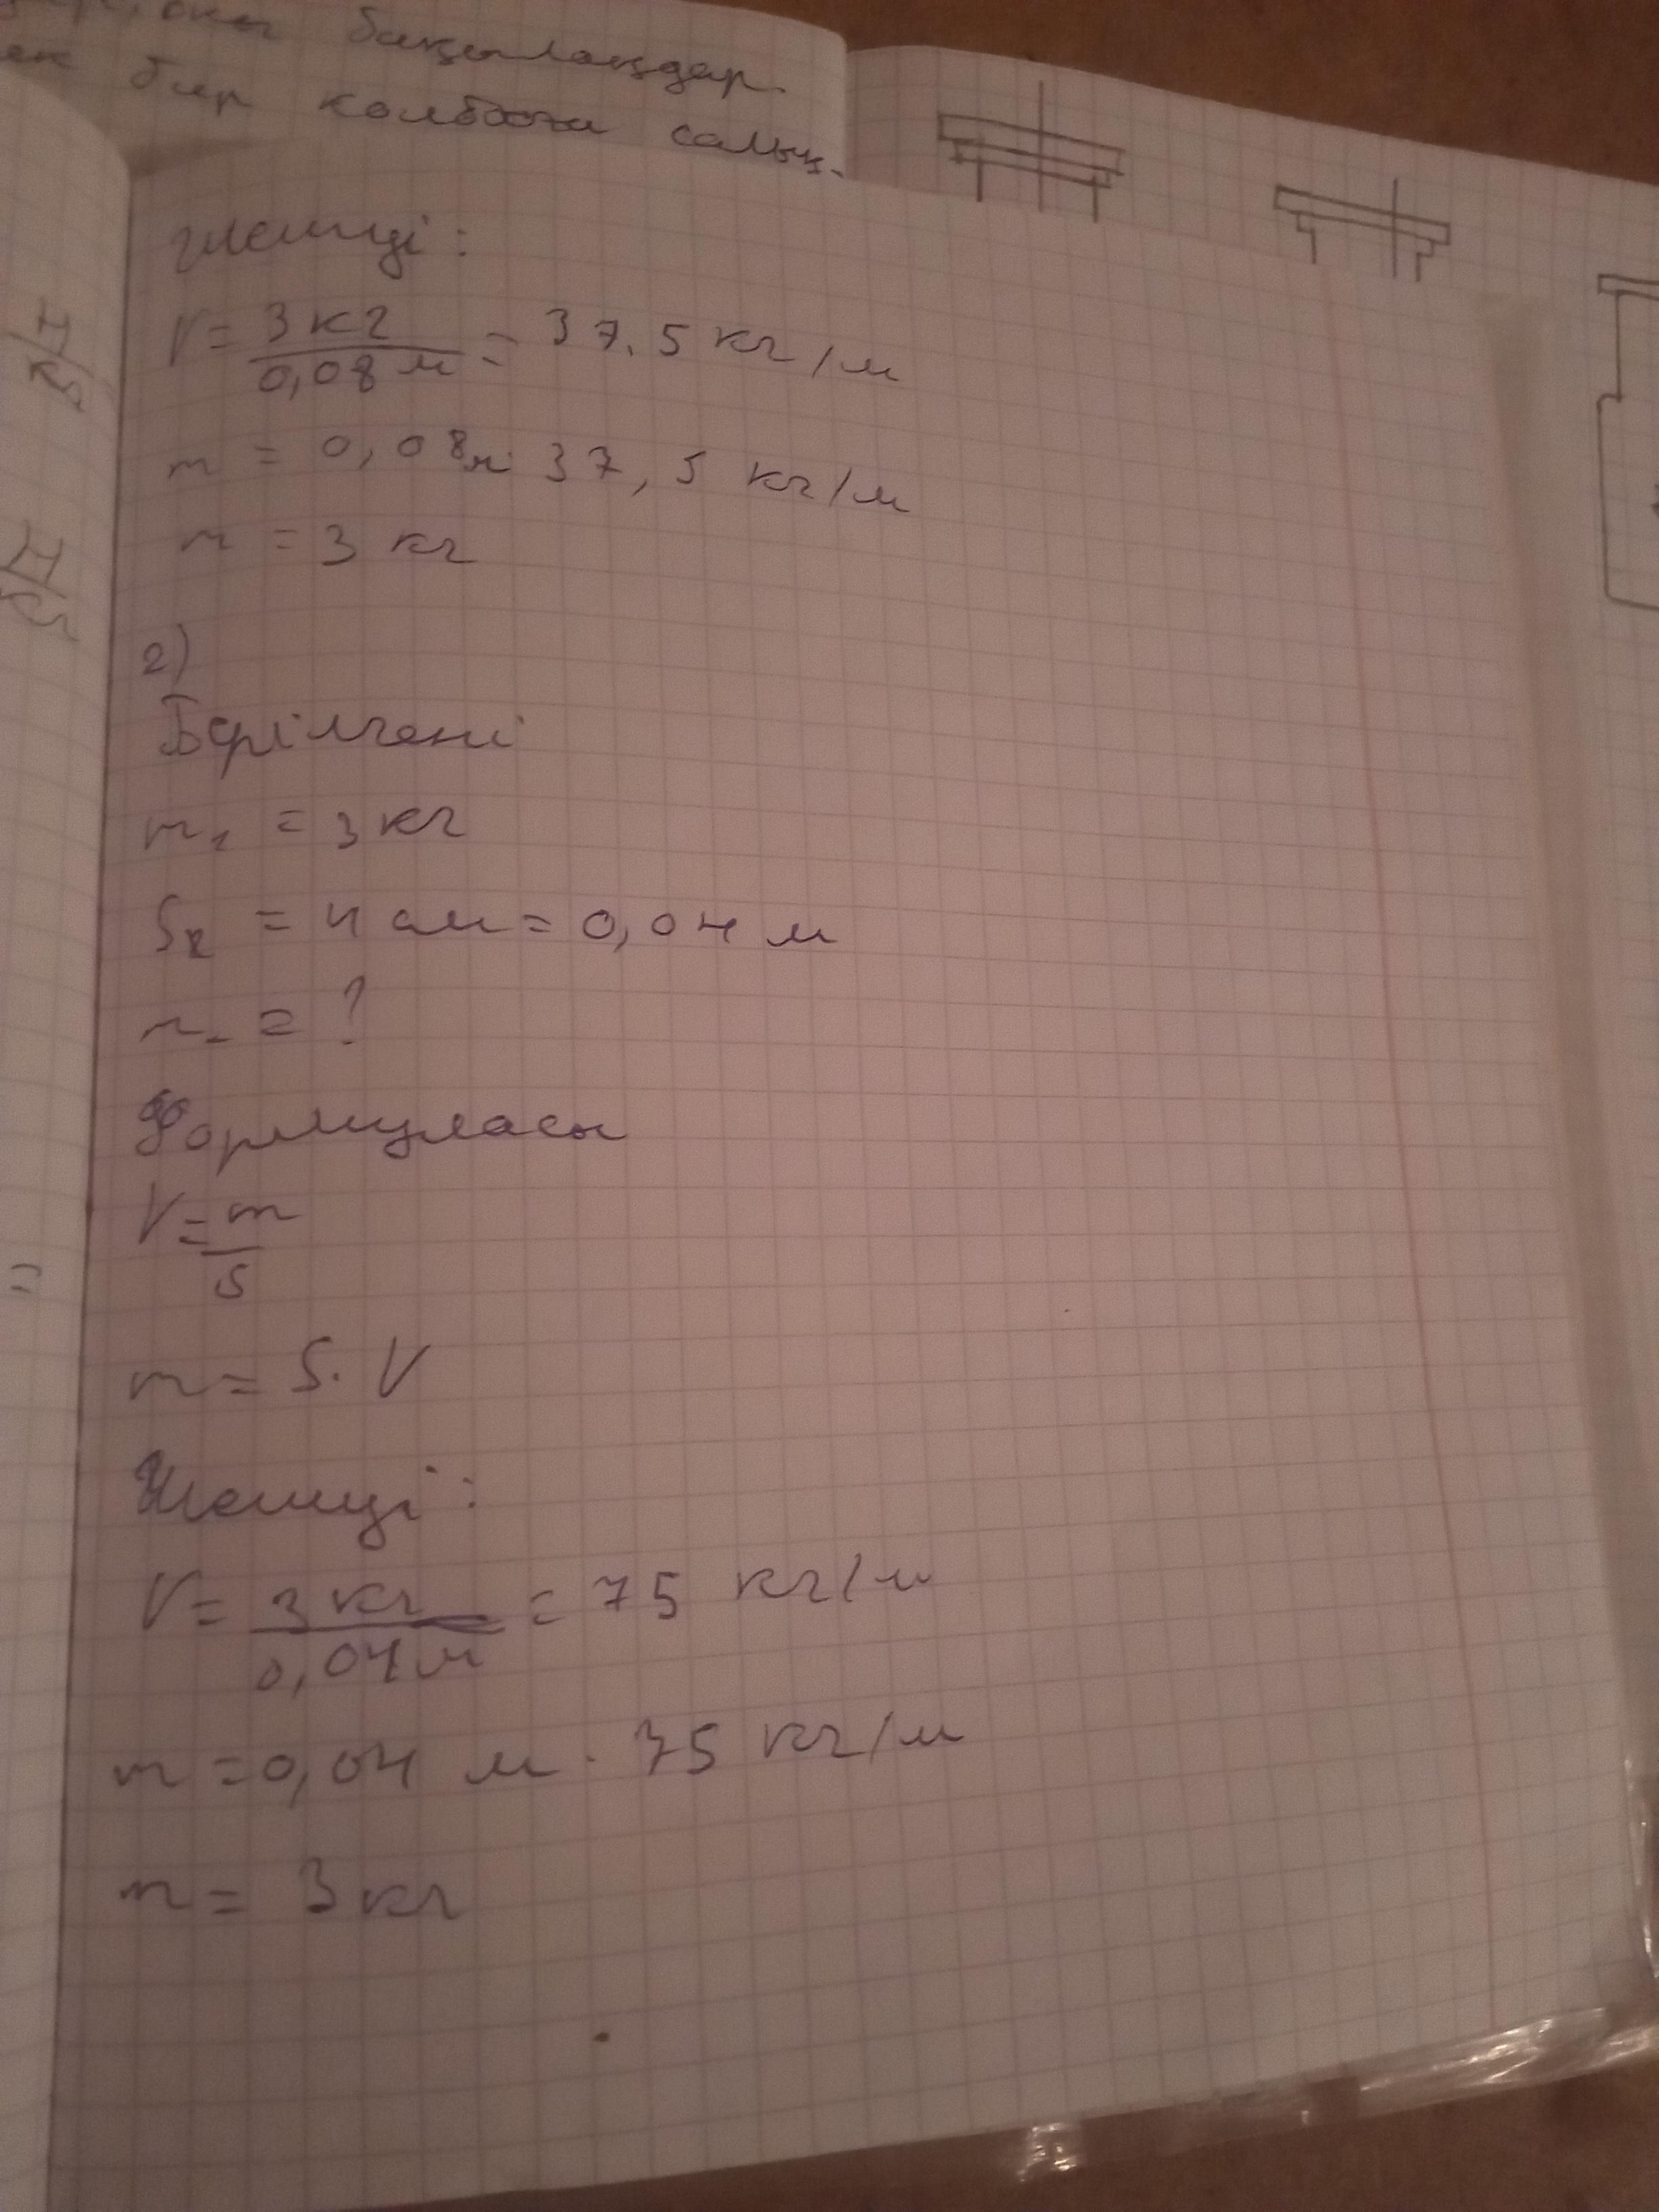 бақылаңдар.
бир колбаға салың.
Шешуі:
V = 3 кг / 0,08 м = 37.5 кг/м
m = 0,08м · 37,5 кг/м
m = 3 кг
2)
Берілгені
m₁ = 3 кг
S₂ = 4 см = 0,04 м
m₂ = ?
Формуласы
V = m / S
m = S · V
Шешуі:
V = 3 кг / 0,04 м = 75 кг/м
m = 0,04 м · 75 кг/м
m = 3 кг